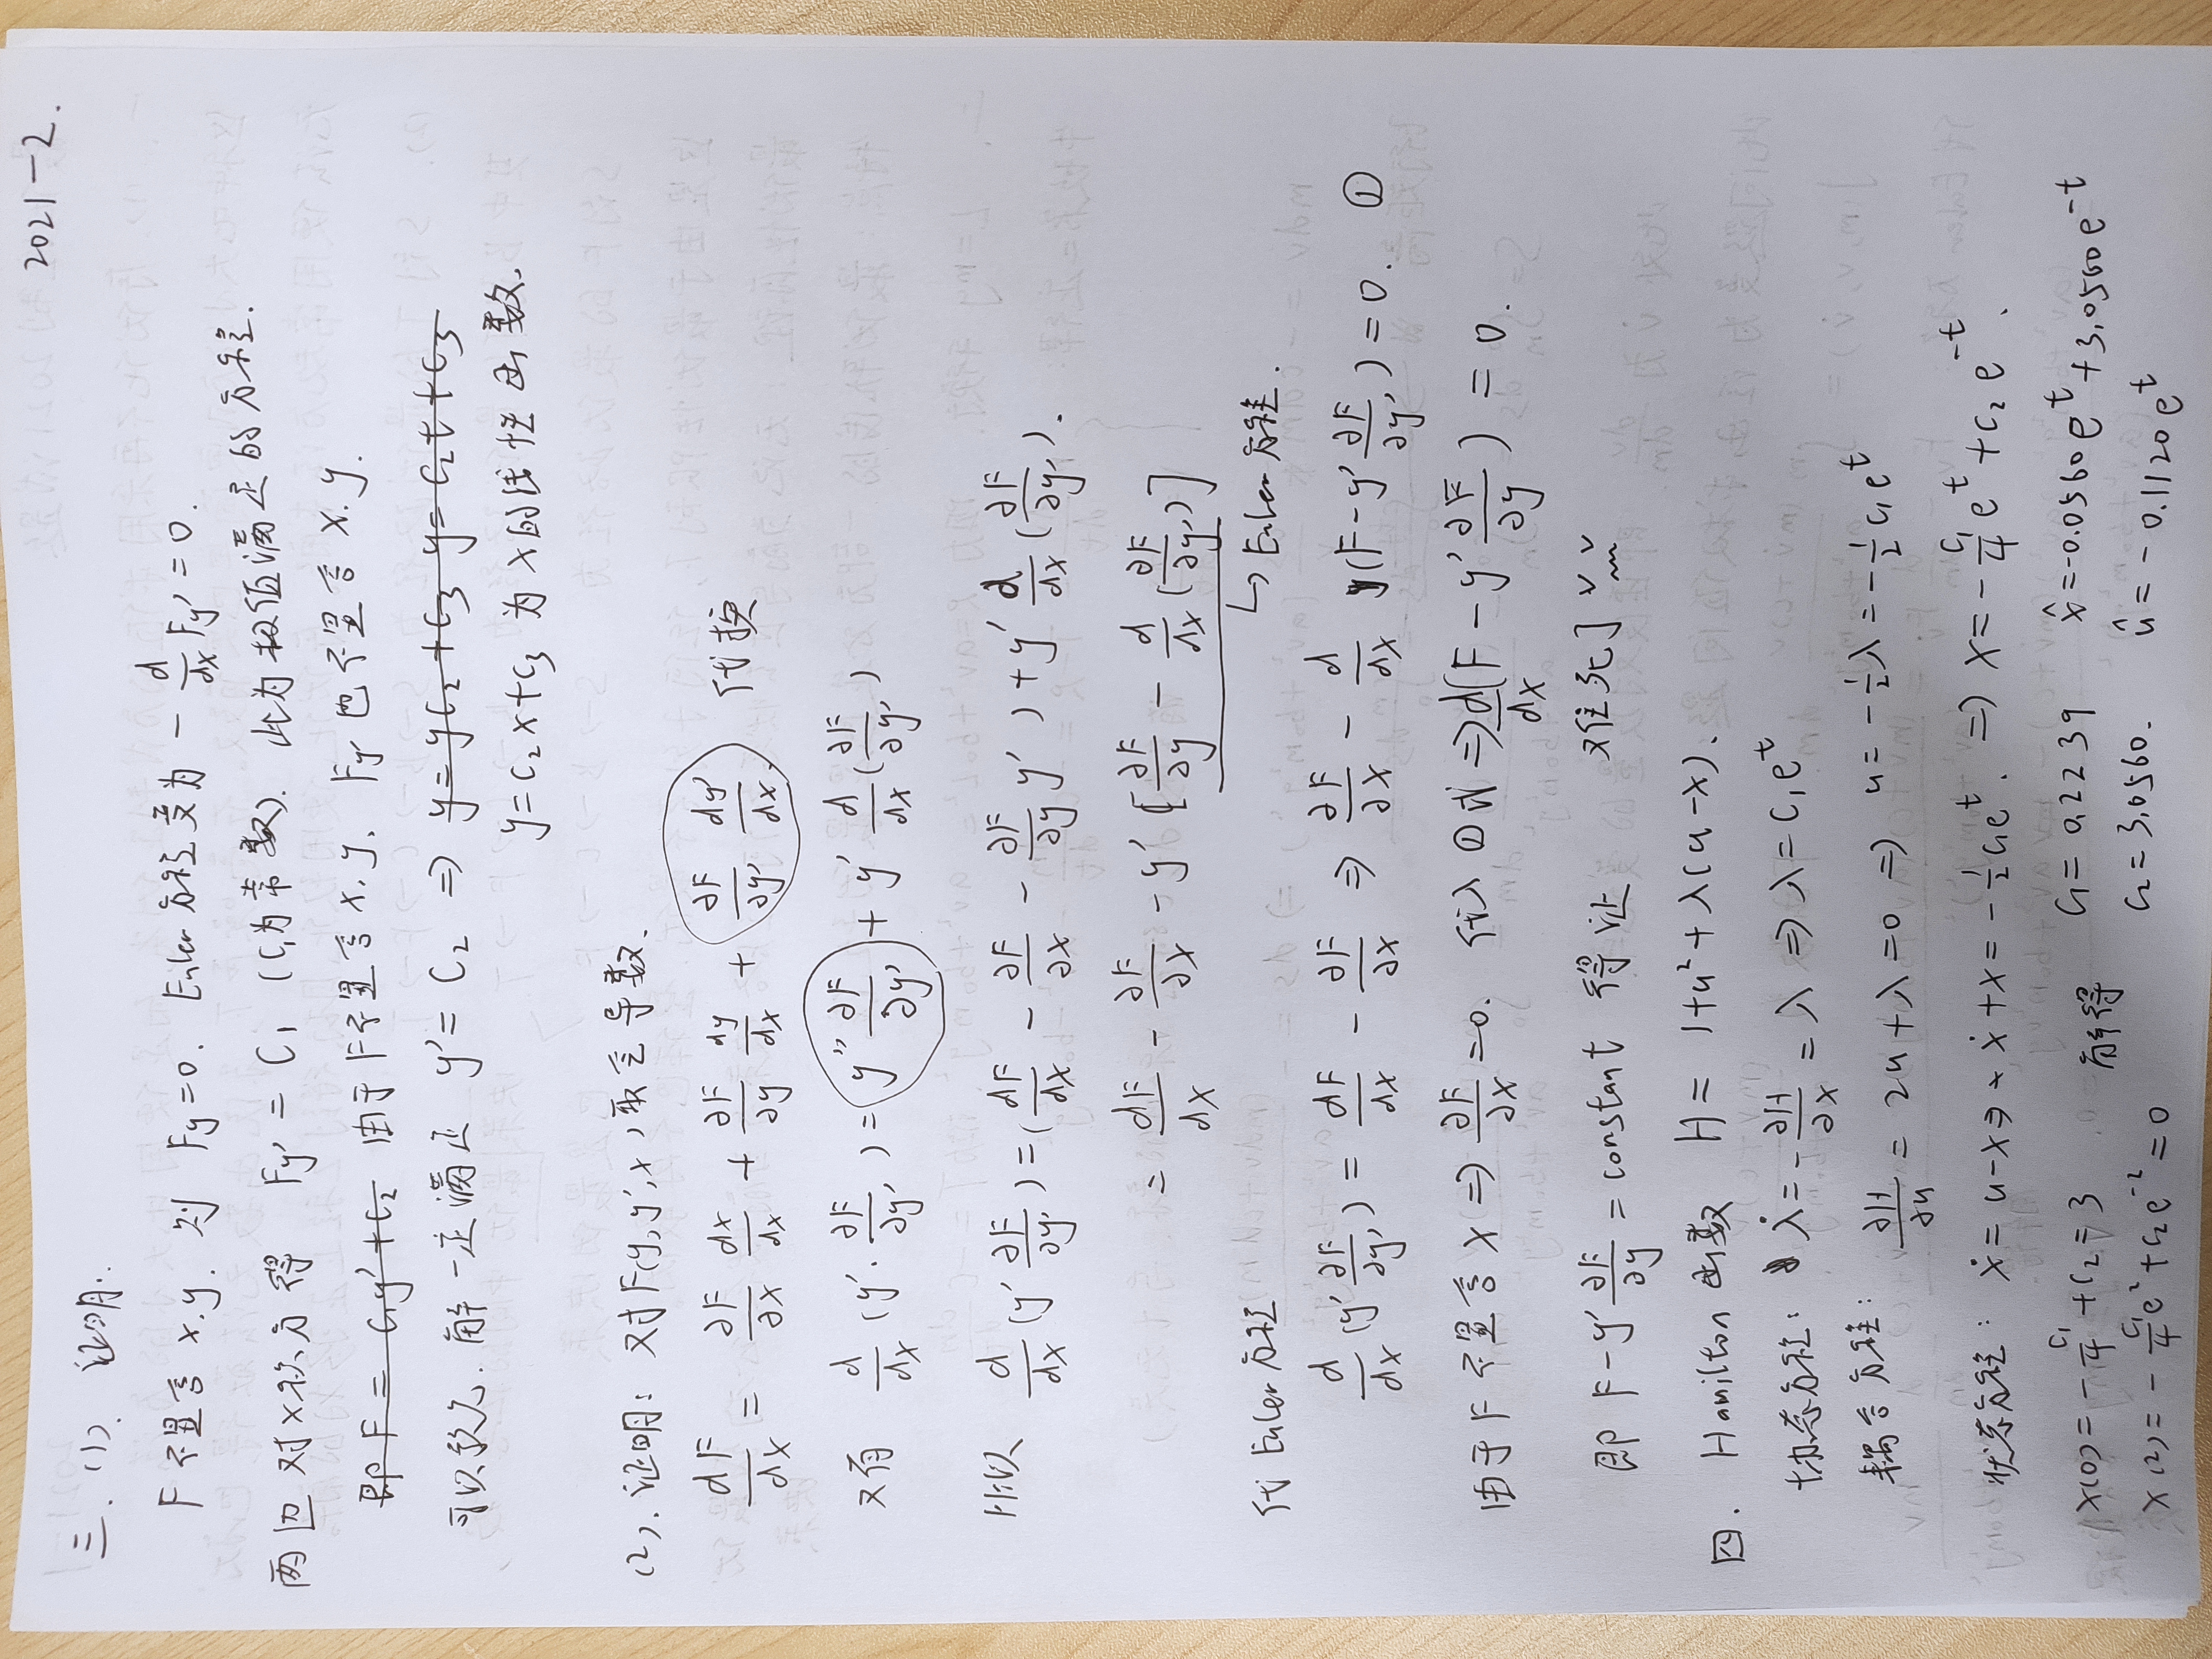 2021-2.
三. (1). 证明:
F不显含x.y. 则 Fy=0. Euler方程变为 -d/dx Fy'=0.
两边对x积分得 Fy' = C₁ (C₁为常数). 此为极值满足的方程.
即F = C₁y'+C₂ 由于F不显含x,y. Fy'也不显含x.y.
可以默认. 解一定满足 y'=C₂ ⇒ y=yC₂+C₃ y=C₂t+C₃
y=C₂x+C₃为x的线性函数.
(2). 证明: 对F(y,y',x)取全导数.
dF/dx = ∂F/∂x dx/dx + ∂F/∂y dy/dx + ∂F/∂y' dy'/dx 代换
又有 d/dx (y'·∂F/∂y') = y''∂F/∂y' + y' d/dx(∂F/∂y')
所以 d/dx (y'∂F/∂y') = (dF/dx - ∂F/∂x - ∂F/∂y y') + y' d/dx(∂F/∂y').
= dF/dx - ∂F/∂x - y'[∂F/∂y - d/dx(∂F/∂y')]
↳ Euler方程.
代Euler方程
d/dx (y'∂F/∂y') = dF/dx - ∂F/∂x ⇒ ∂F/∂x - d/dx (F-y'∂F/∂y') = 0. ①
由于F不显含x ⇒ ∂F/∂x =0. 代入①式 ⇒ d/dx (F-y'∂F/∂y) = 0.
即 F-y'∂F/∂y = constant 得证 对任死]
四. Hamilton函数 H = 1+u²+λ(u-x).
协态方程: λ̇ = -∂H/∂x = λ ⇒ λ=C₁eᵗ
耦合方程: ∂H/∂u = 2u+λ=0 ⇒ u = -½λ = -½C₁eᵗ
状态方程: ẋ = u-x ⇒ ẋ+x = -½C₁eᵗ. ⇒ x = -C₁/4 eᵗ + C₂e⁻ᵗ.
x(0) = -C₁/4 + C₂ = 3 解得 C₁ = 0.2239 x̂ = -0.0560eᵗ + 3.0560e⁻ᵗ
x(2) = -C₁/4 e² + C₂e⁻² = 0 C₂ = 3.0560. û = -0.1120eᵗ